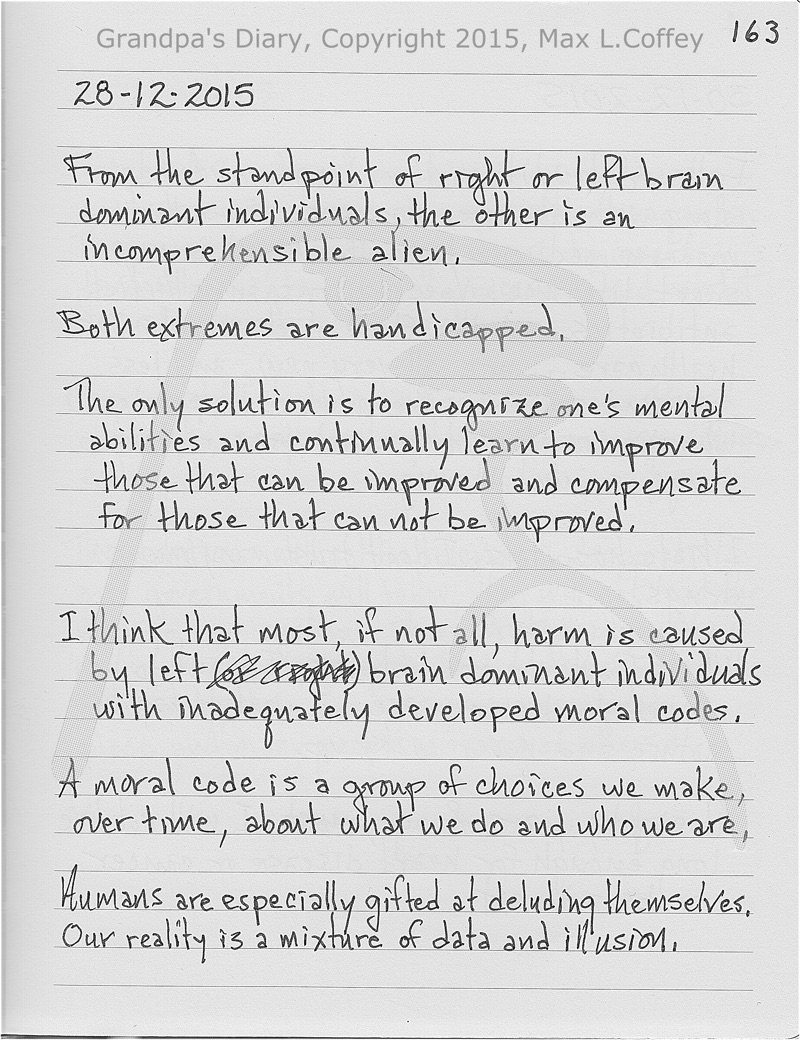 Grandpa's Diary, Copyright 2015, Max L.Coffey
163
28-12-2015
From the standpoint of right or left brain
dominant individuals, the other is an
incomprehensible alien.
Both extremes are handicapped.
The only solution is to recognize one's mental
abilities and continually learn to improve
those that can be improved and compensate
for those that can not be improved.
I think that most, if not all, harm is caused
by left (or right) brain dominant individuals
with inadequately developed moral codes.
A moral code is a group of choices we make,
over time, about what we do and who we are,
Humans are especially gifted at deluding themselves.
Our reality is a mixture of data and illusion.